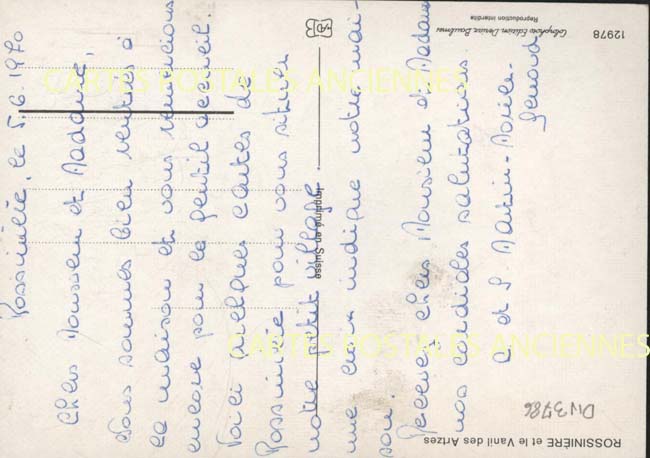 Rossinière, le 5.6.1970
Chers Monsieur et Madame,
Nous sommes bien rentrés à
la maison et vous remercions
encore pour le gentil accueil.
Voici quelques cartes de
Rossinière pour vous situer
notre petit village.
une croix indique notre mai-
son.
Recevez chers Monsieur et Madame
nos cordiales salutations
et Martin-
ROSSINIÈRE et le Vanil des Artzes
Imprimé en Suisse
12978
Reproduction interdite
Div3786
CARTES POSTALES ANCIENNES
CARTES POSTALES ANCIENNES